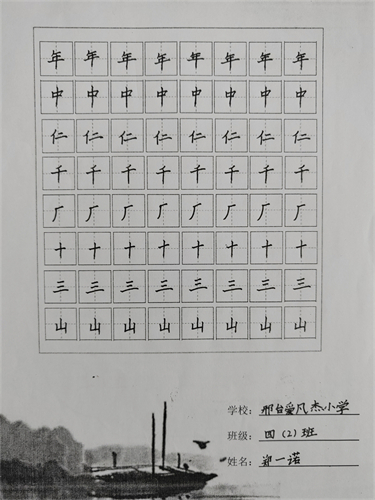 年年年年年年年年
中中中中中中中中
仁仁仁仁仁仁仁仁
千千千千千千千千
厂厂厂厂厂厂厂厂
十十十十十十十十
三三三三三三三三
山山山山山山山山
学校：邢台爱凡杰小学
班级：四（2）班
姓名：郑一诺